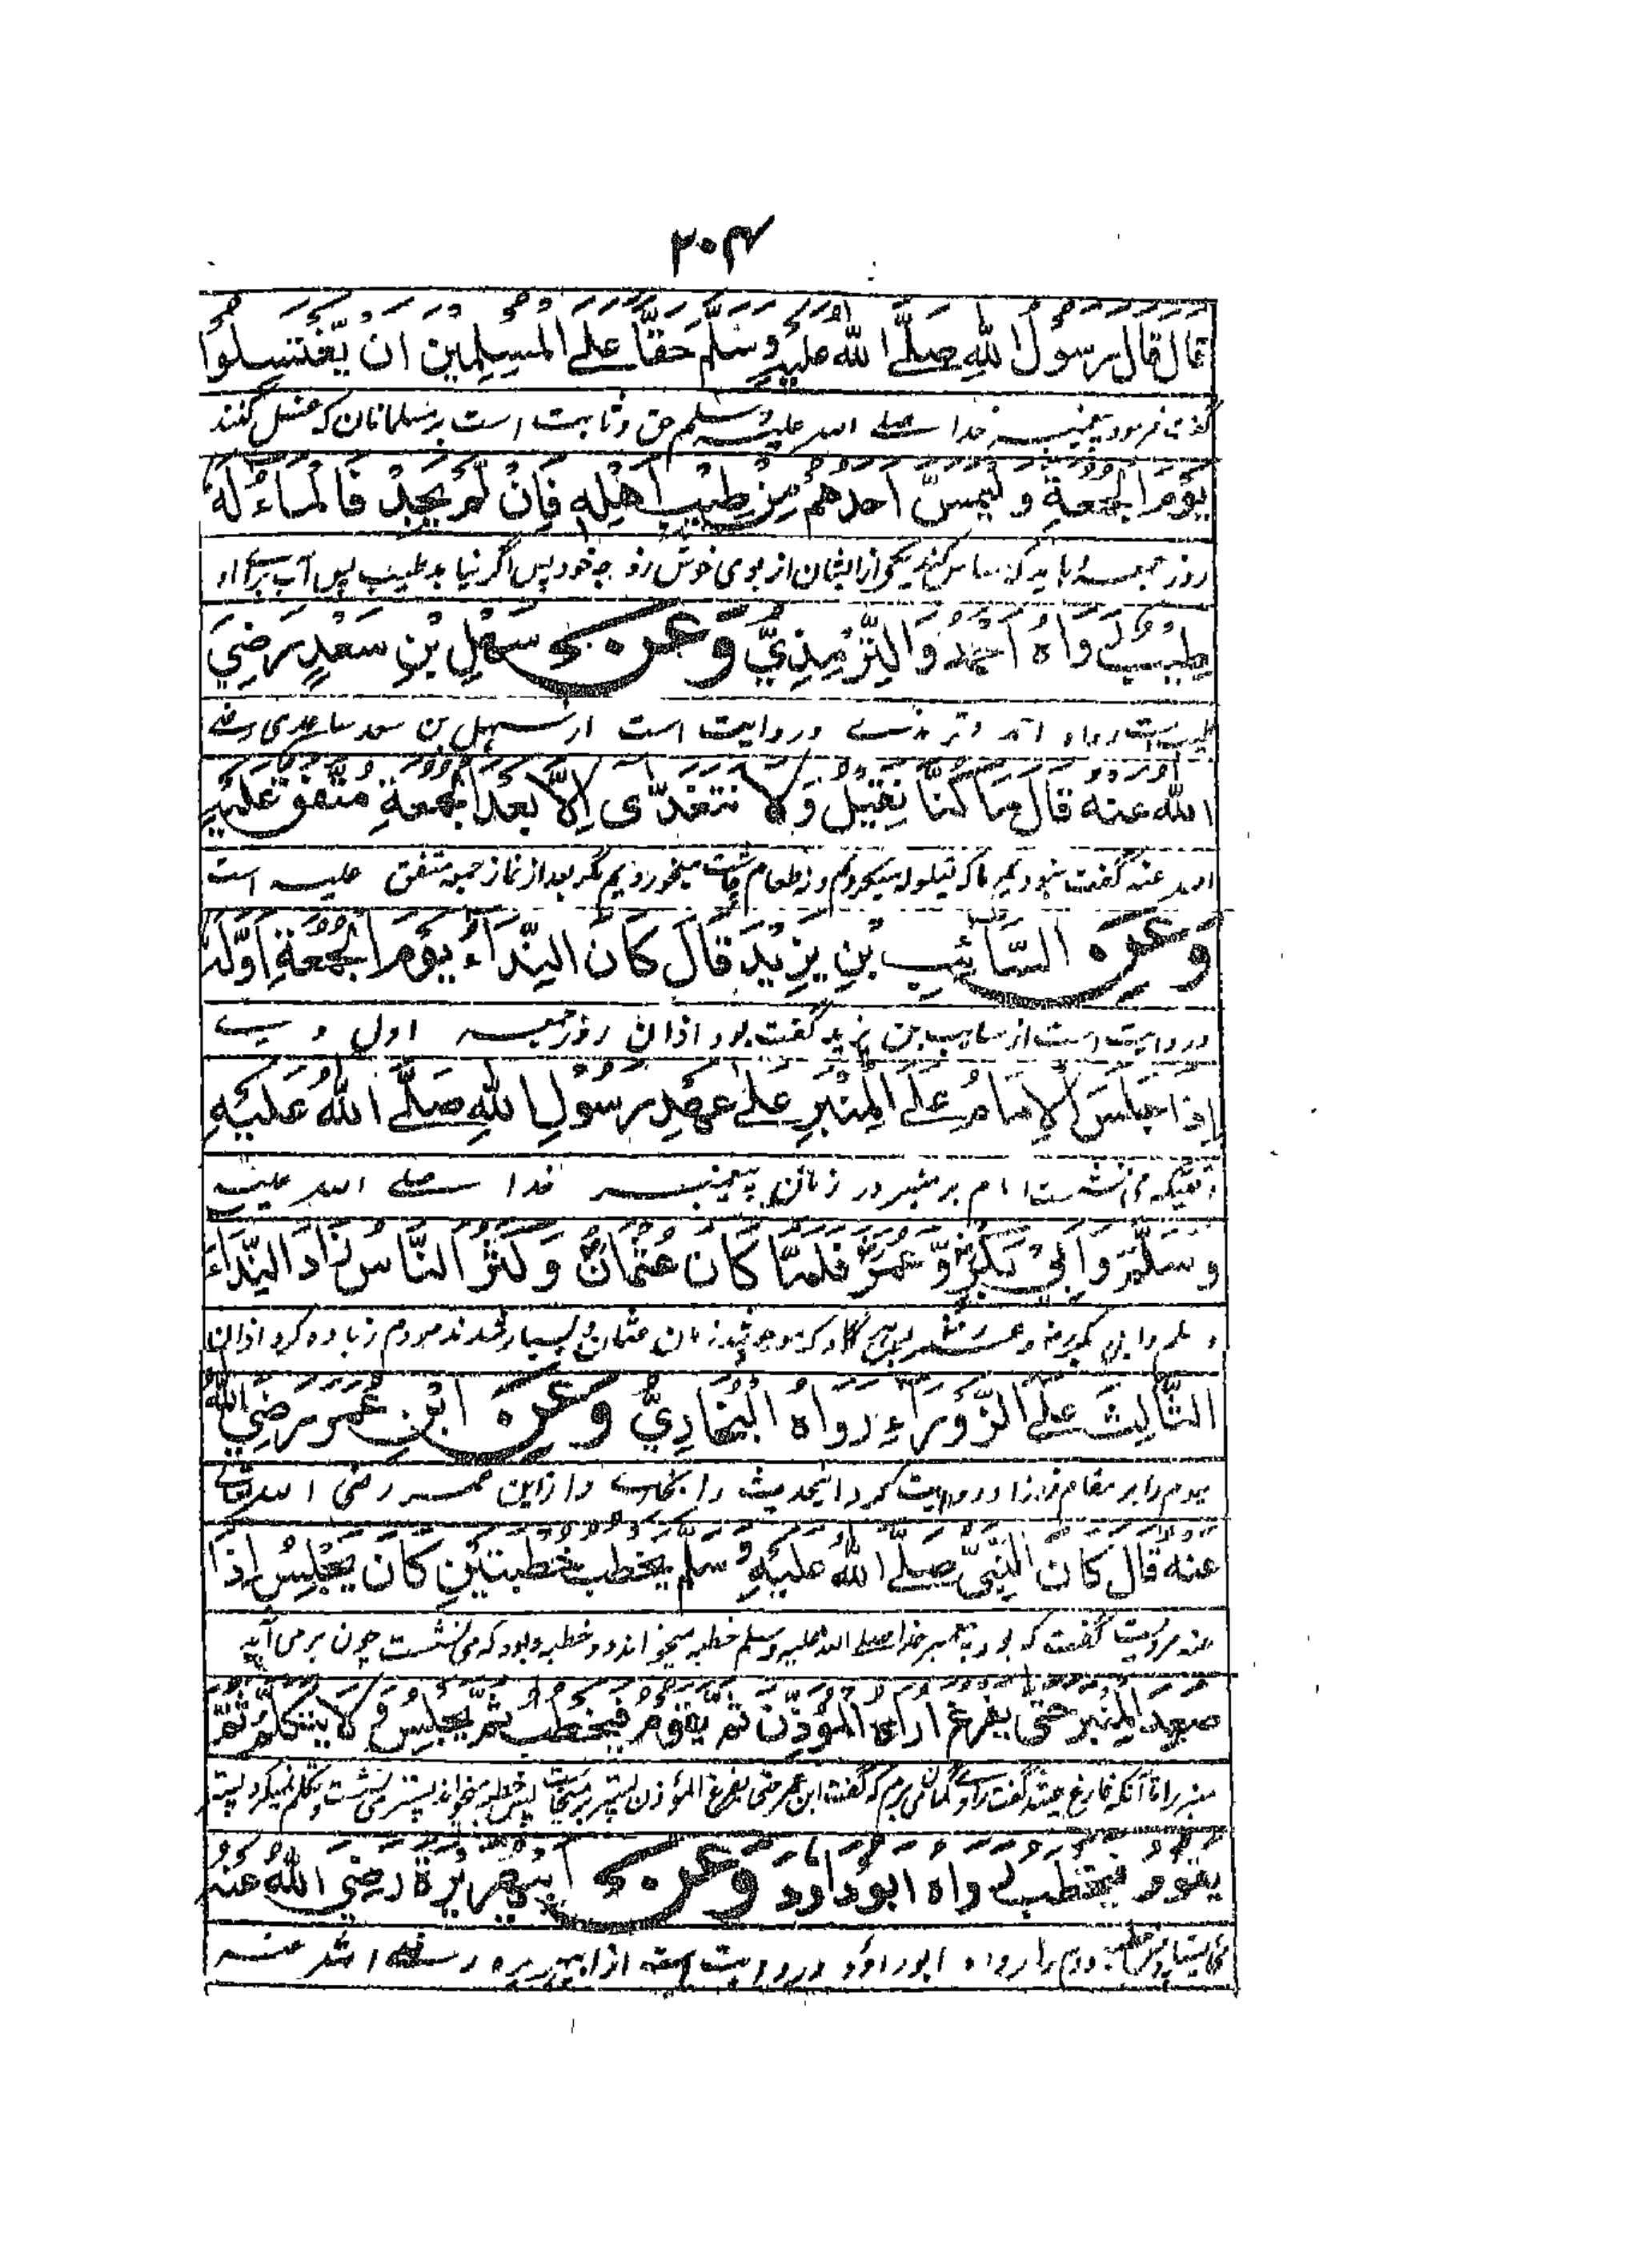 ۲۰۴
قَالَ قَالَ رَسُوْلُ اللّٰهِ صَلَّے اللّٰهُ عَلَيْهِ وَسَلَّمَ حَقًّا عَلَے الْمُسْلِمِيْنَ اَنْ يَّغْتَسِلُوْا
فرمود پیغمبر خدا صلے اللہ علیہ وسلم حق و ثابت است بر مسلمانان کہ غسل کنند
يَوْمَ الْجُمُعَةِ وَلْيَمَسَّ اَحَدُهُمْ مِنْ طِيْبِ اَهْلِهِ فَاِنْ لَّمْ يَجِدْ فَالْمَاءُ لَهٗ
روز جمعہ و باید کہ مساس کند یکے از ایشان از بوی خوش زوجہ خود پس اگر نیابد طیب پس آب برائے او
طِيْبٌ رَوَاهُ اَحْمَدُ وَالتِّرْمِذِيُّ وَعَنْ سَهْلِ بْنِ سَعْدٍ رَضِيَ
طیب است رواہ احمد وترمذے وروایت است از سہل بن سعد ساعدی رضے
اللّٰهُ عَنْهُ قَالَ مَا كُنَّا نَقِيْلُ وَلَا نَتَغَدّٰى اِلَّا بَعْدَ الْجُمُعَةِ مُتَّفَقٌ عَلَيْهِ
اللہ عنہ گفت نبودیم ما کہ قیلولہ میکردیم ونہ طعام چاشت میخوردیم مگر بعد از نماز جمعہ متفق علیہ است
وَعَنِ السَّائِبِ بْنِ يَزِيْدَ قَالَ كَانَ النِّدَاءُ يَوْمَ الْجُمُعَةِ اَوَّلُهٗ
وروایت است از سایب بن یزید گفت بود اذان روز جمعہ اول وے
اِذَا جَلَسَ الْاِمَامُ عَلَے الْمِنْبَرِ عَلٰے عَهْدِ رَسُوْلِ اللّٰهِ صَلَّے اللّٰهُ عَلَيْهِ
وقتیکہ می نشست امام بر منبر در زمان پیغمبر خدا صلے اللہ علیہ
وَسَلَّمَ وَاَبِيْ بَكْرٍ وَّعُمَرَ فَلَمَّا كَانَ عُثْمَانُ وَكَثُرَ النَّاسُ زَادَ النِّدَاءَ
وسلم وابی بکر وعمر عثمان و بسیار شدند مردم زیادہ کرد اذان
الثَّالِثَ عَلَے الزَّوْرَاءِ رَوَاهُ الْبُخَارِيُّ وَعَنِ ابْنِ عُمَرَ رَضِيَ اللّٰهُ
سوم را بر مقام زورا و روایت کرد اینحدیث را بخاری و از ابن عمر رضی اللہ تعالے
عَنْهُ قَالَ كَانَ النَّبِيُّ صَلَّے اللّٰهُ عَلَيْهِ وَسَلَّمَ يَخْطُبُ خُطْبَتَيْنِ كَانَ يَجْلِسُ اِذَا
عنہ مرویست گفت کہ بود پیغمبر خدا صلے اللہ علیہ وسلم خطبہ میخواند دو خطبہ و بود کہ می نشست چون بر می آید
صَعِدَ الْمِنْبَرَ حَتّٰى يَفْرُغَ اُرَاهُ الْمُؤَذِّنُ ثُمَّ يَقُوْمُ فَيَخْطُبُ ثُمَّ يَجْلِسُ وَلَا يَتَكَلَّمُ ثُمَّ
منبر را تا آنکہ فارغ گفت راوے گمان می برم کہ گفت ابن عمر حتی یفرغ المؤذن پستر پس خطبہ میخواند پستر می نشست و تکلم نمیکرد پستر
يَقُوْمُ فَيَخْطُبُ رَوَاهُ اَبُوْدَاوٗدَ وَعَنْ اَبِيْ هُرَيْرَةَ رَضِيَ اللّٰهُ عَنْهُ
دوم را رواہ ابوداؤد وروایت است از ابی ہریرہ رضے اللہ عنہ